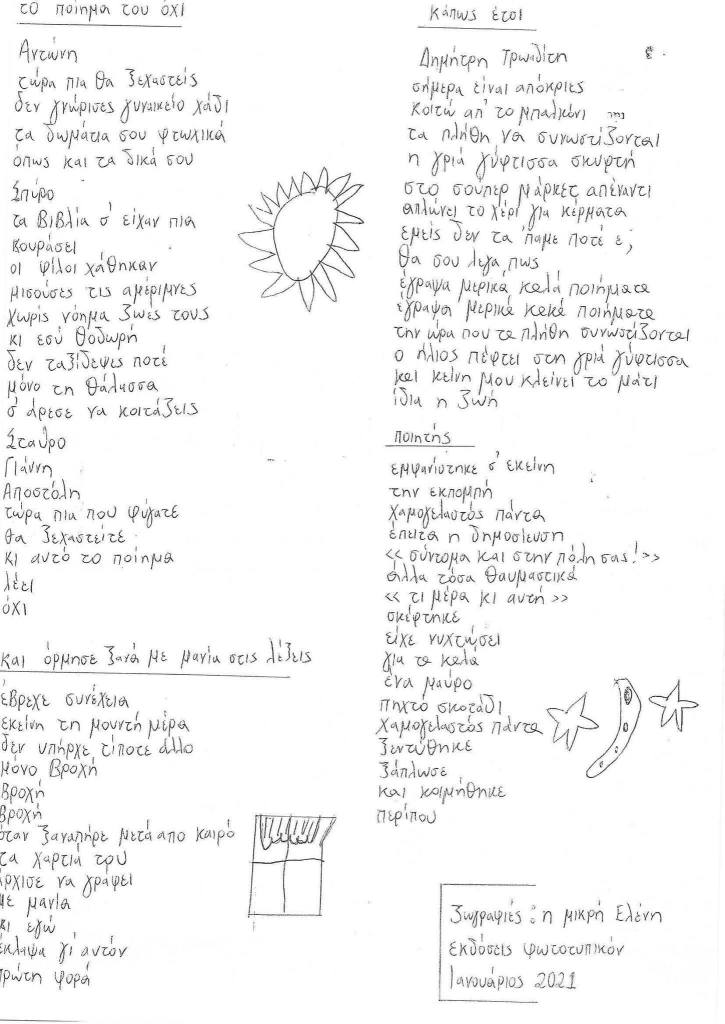 το ποίημα του όχι
Αντώνη
τώρα πια θα ξεχαστείς
δεν γνώρισες γυναικείο χάδι
τα δωμάτια σου φτωχικά
όπως και τα δικά σου
Σπύρο
τα βιβλία σ' είχαν πια
κουράσει
οι φίλοι χάθηκαν
μισούσες τις αμέριμνες
χωρίς νόημα ζωές τους
κι εσύ Θοδωρή
δεν ταξίδεψες ποτέ
μόνο τη θάλασσα
σ' άρεσε να κοιτάζεις
Σταύρο
Γιάννη
Αποστόλη
τώρα πια που φύγατε
θα ξεχαστείτε
κι αυτό το ποίημα
λέει
όχι
και όρμησε ξανά με μανία στις λέξεις
έβρεχε συνέχεια
εκείνη τη μουντή μέρα
δεν υπήρχε τίποτε άλλο
μόνο βροχή
βροχή
βροχή
όταν ξαναπήρε μετά απο καιρό
τα χαρτιά του
άρχισε να γράφει
με μανία
κι εγώ
έκλαψα γι αυτόν
πρώτη φορά
κάπως έτσι
Δημήτρη Τρωαδίτη
σήμερα είναι απόκριες
κοιτώ απ' το μπαλκόνι της
τα πλήθη να συνωστίζονται
η γριά γύφτισσα σκυφτή
στο σούπερ μάρκετ απέναντι
απλώνει το χέρι για κέρματα
εμείς δεν τα 'παμε ποτέ ε;
θα σου λεγα πως
έγραψα μερικά καλά ποιήματα
έγραψα μερικά κακά ποιήματα
την ώρα που τα πλήθη συνωστίζονται
ο ήλιος πέφτει στη γριά γύφτισσα
και κείνη μου κλείνει το μάτι
ίδια η ζωή
ποιητής
εμφανίστηκε σ' εκείνη
την εκπομπή
χαμογελαστός πάντα
έπειτα η δημοσίευση
<< σύντομα και στην πόλη σας! >>
άλλα τόσα θαυμαστικά
<< τι μέρα κι αυτή >>
σκέφτηκε
είχε νυχτώσει
για τα καλά
ένα μαύρο
πηχτό σκοτάδι
χαμογελαστός πάντα
ξεντύθηκε
ξάπλωσε
και κοιμήθηκε
περίπου
ζωγραφιές : η μικρή Ελένη
εκδόσεις φωτοτυπικόν
Ιανουάριος 2021